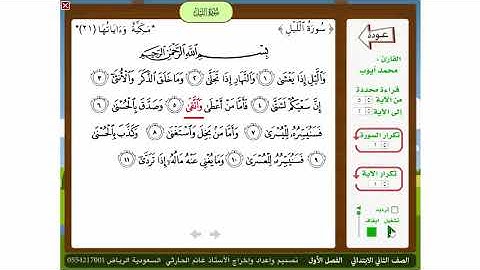 سُورَةُ اللَّيْلِ
سُورَةُ اللَّيْلِ
*مَكِّيَّةٌ وَءَايَاتُهَا (٢١)*
بِسْمِ اللَّهِ الرَّحْمَٰنِ الرَّحِيمِ
وَاللَّيْلِ إِذَا يَغْشَىٰ ١ وَالنَّهَارِ إِذَا تَجَلَّىٰ ٢ وَمَا خَلَقَ الذَّكَرَ وَالْأُنثَىٰ ٣
إِنَّ سَعْيَكُمْ لَشَتَّىٰ ٤ فَأَمَّا مَنْ أَعْطَىٰ وَاتَّقَىٰ ٥ وَصَدَّقَ بِالْحُسْنَىٰ ٦
فَسَنُيَسِّرُهُ لِلْيُسْرَىٰ ٧ وَأَمَّا مَن بَخِلَ وَاسْتَغْنَىٰ ٨ وَكَذَّبَ بِالْحُسْنَىٰ
٩ فَسَنُيَسِّرُهُ لِلْعُسْرَىٰ ١٠ وَمَا يُغْنِي عَنْهُ مَالُهُ إِذَا تَرَدَّىٰ ١١
عودة
القارئ -
محمد أيوب
قراءة محددة
من الآية 5
إلى الآية 1
تكرار السورة
1
تكرار الآية
1
ترديد
تشغيل ايقاف
الصف الثاني الابتدائي الفصل الأول تصميم وإعداد وإخراج الأستاذ غانم الحارثي السعودية الرياض 0554217001